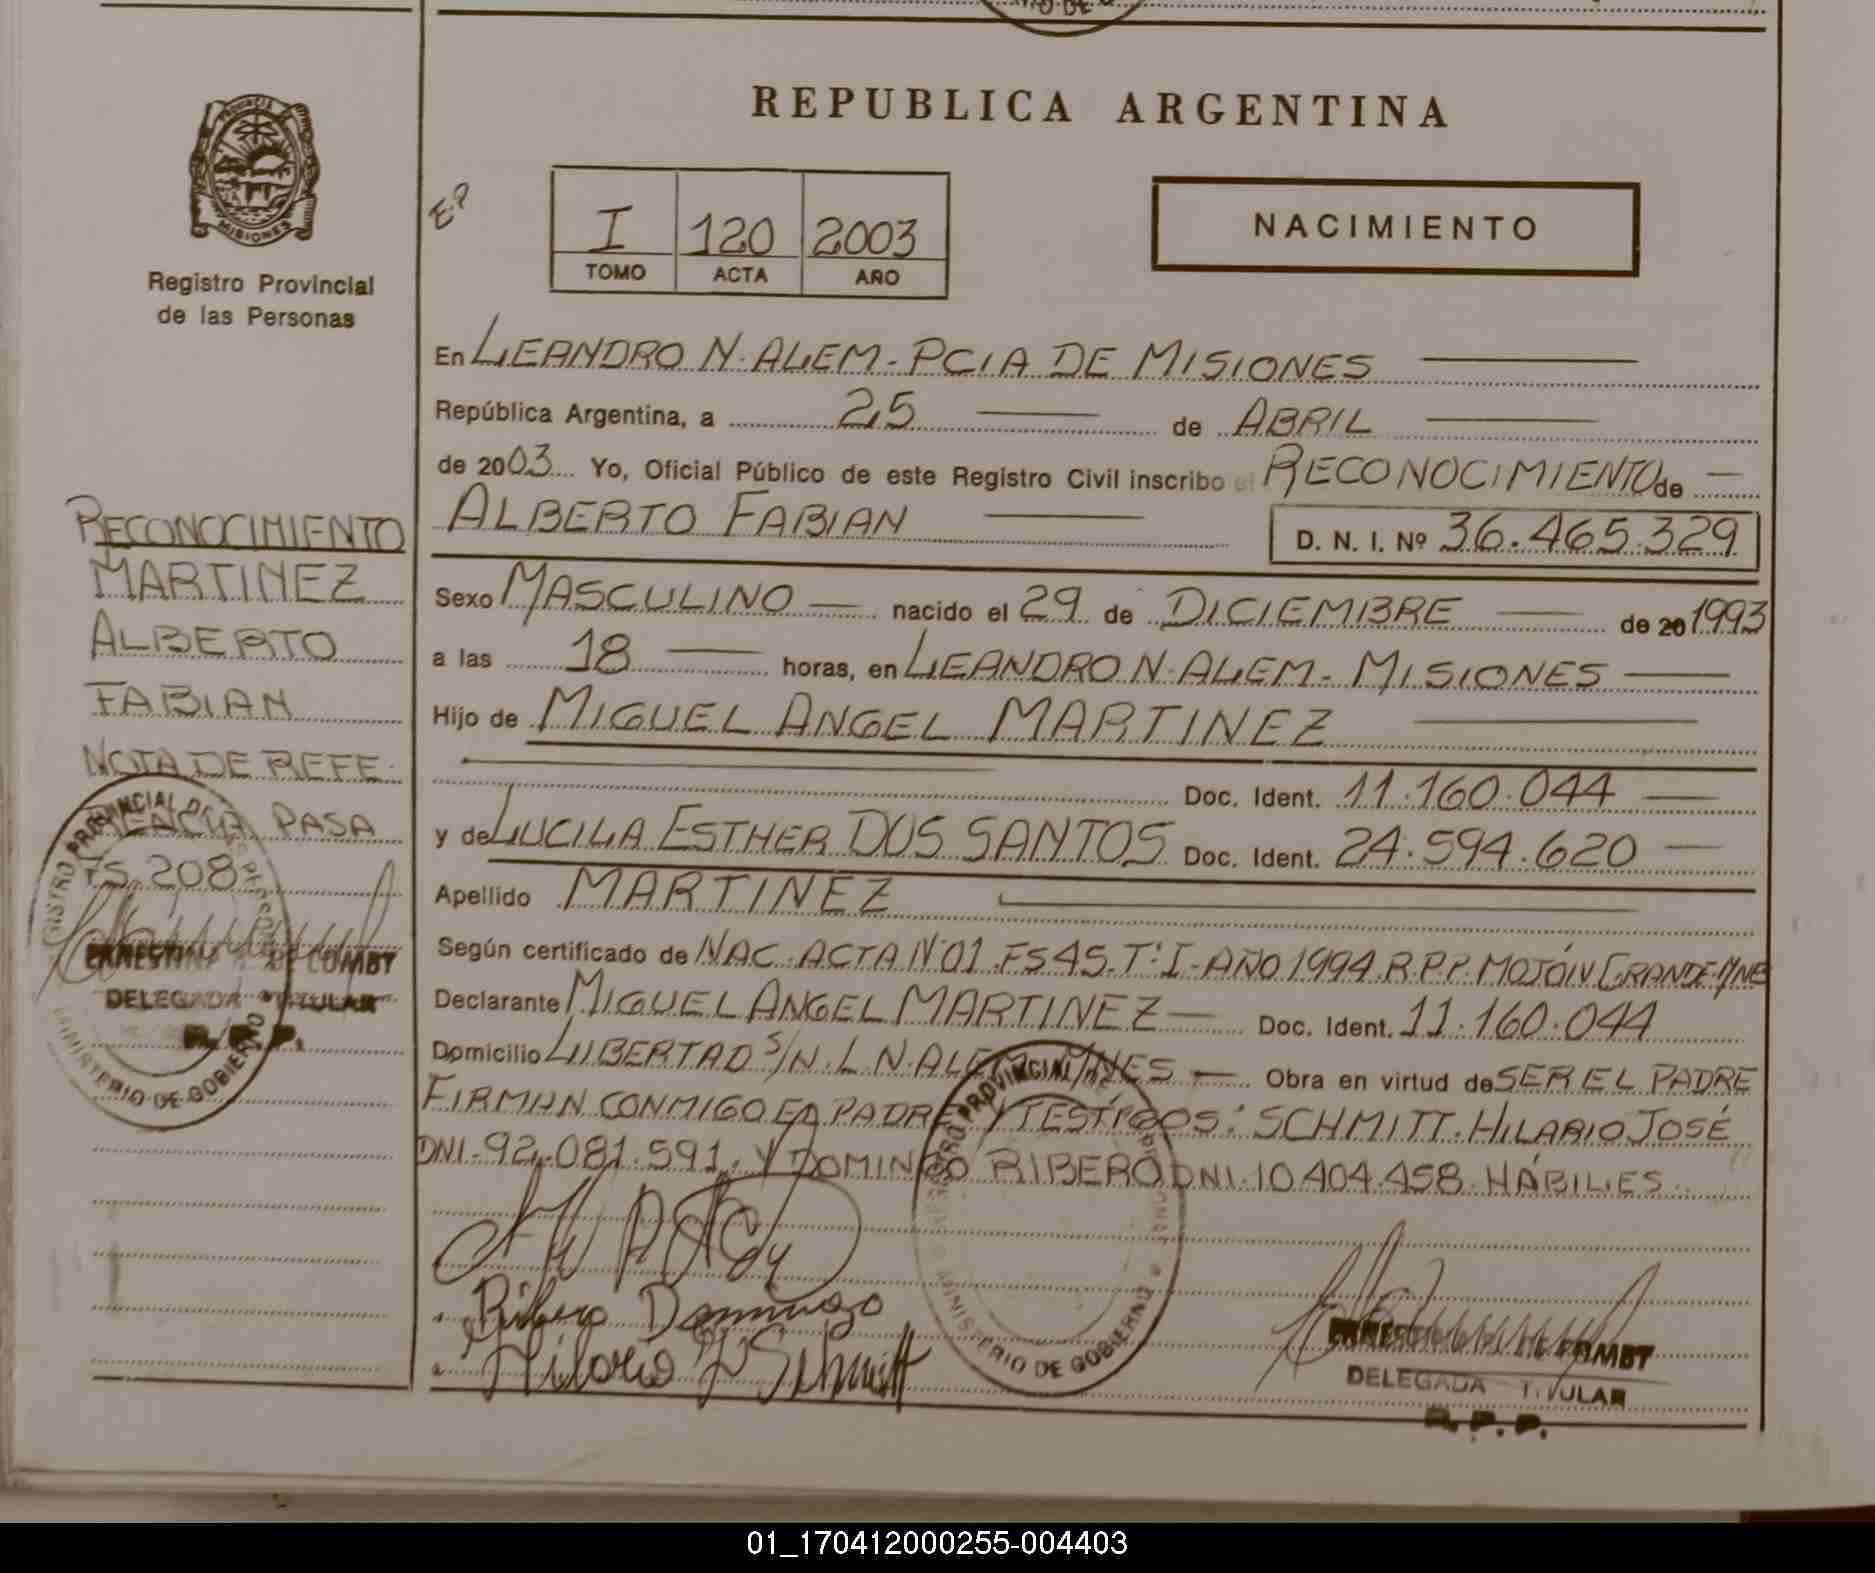 REPUBLICA ARGENTINA
PROVINCIA
MISIONES
Registro Provincial
de las Personas
E.P
I 120 2003
TOMO ACTA AÑO
NACIMIENTO
En LEANDRO N. ALEM - PCIA DE MISIONES
República Argentina, a 25 de ABRIL
de 2003 Yo, Oficial Público de este Registro Civil inscribo el RECONOCIMIENTO de
ALBERTO FABIAN D. N. I. Nº 36.465.329
Sexo MASCULINO nacido el 29 de DICIEMBRE de 20 1993
a las 18 horas, en LEANDRO N. ALEM - MISIONES
Hijo de MIGUEL ANGEL MARTINEZ
Doc. Ident. 11.160.044
y de LUCILA ESTHER DOS SANTOS Doc. Ident. 24.594.620
Apellido MARTINEZ
Según certificado de NAC. ACTA Nº 01 FS 45. Tº I - AÑO 1994 R.P.P. MOJÓN GRANDE - M/NES
Declarante MIGUEL ANGEL MARTINEZ Doc. Ident. 11.160.044
Domicilio LIBERTAD S/N. L. N. ALEM - M/NES Obra en virtud de SER EL PADRE
FIRMAN CONMIGO EL PADRE Y TESTIGOS: SCHMITT. HILARIO JOSÉ
DNI. 92.081.591. Y DOMINGO RIBERO DNI. 10.404.458. HÁBILES
Ribero Domingo
Hilario J Schmitt
MINISTERIO DE GOBIERNO
DELEGADA TITULAR
R. P. P.
RECONOCIMIENTO
MARTINEZ
ALBERTO
FABIAN
NOTA DE REFE
RENCIA PASA
FS. 208
REGISTRO PROVINCIAL DE LAS PERSONAS
MINISTERIO DE GOBIERNO
DELEGADA TITULAR
R. P. P.
01_170412000255-004403